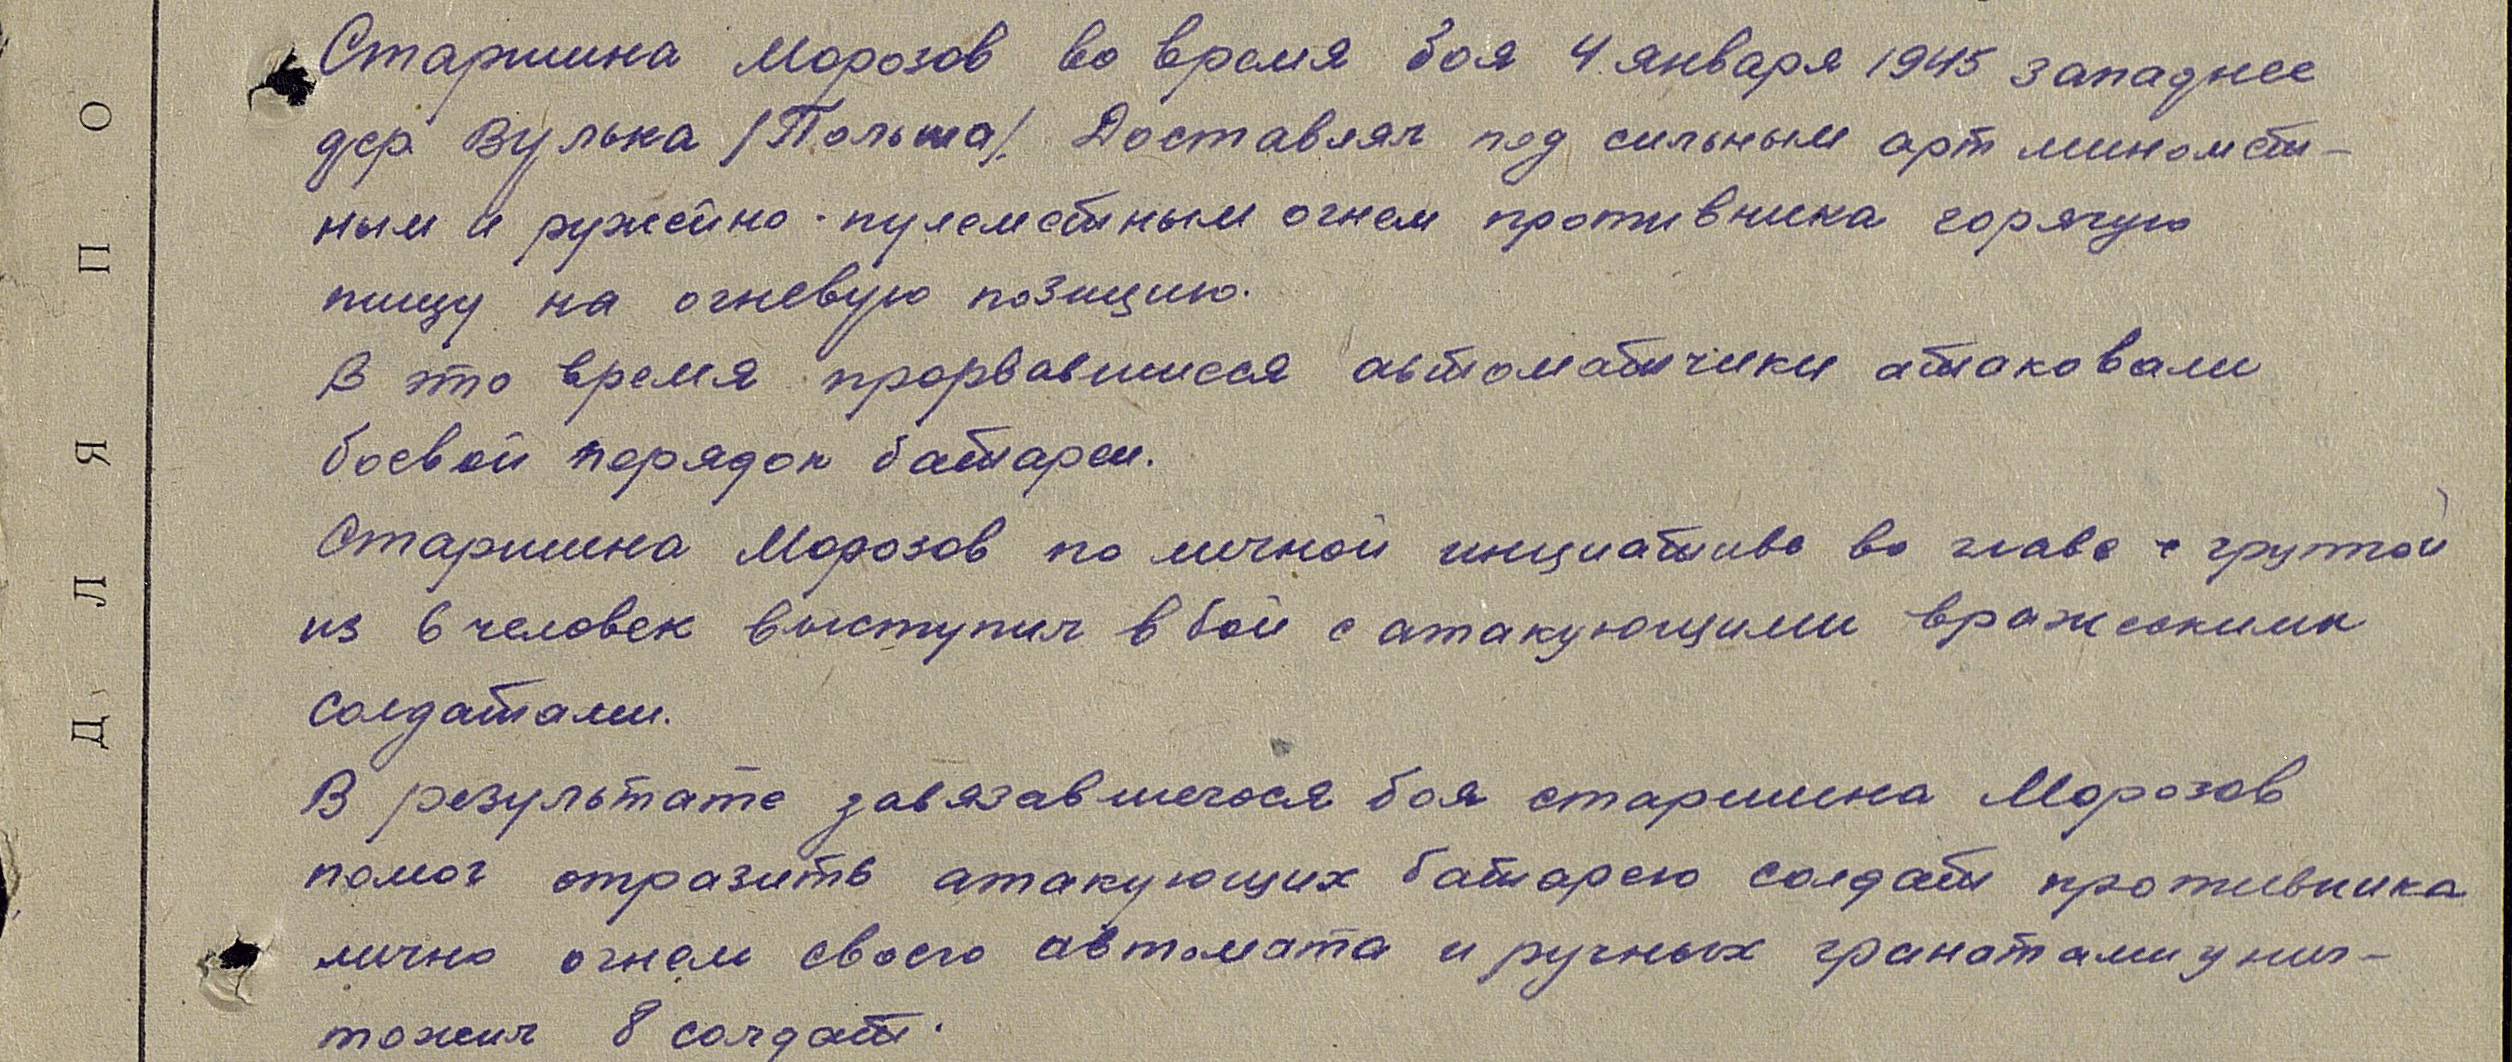 Старшина Морозов во время боя 4 января 1945 западнее
дер. Вулька /Польша/. Доставлял под сильным арт миномет-
ным и ружейно-пулеметным огнем противника горячую
пищу на огневую позицию.
В это время прорвавшиеся автоматчики атаковали
боевой порядок батареи.
Старшина Морозов по личной инициативе во главе с группой
из 6 человек выступил в бой с атакующими вражескими
солдатами.
В результате завязавшегося боя старшина Морозов
помог отразить атакующих батарею солдат противника
лично огнем своего автомата и ручных гранатами унич-
тожил 8 солдат.
Д Л Я П О